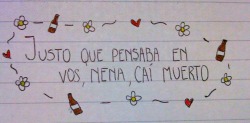 JUSTO QUE PENSABA EN
VOS, NENA, CAÍ MUERTO